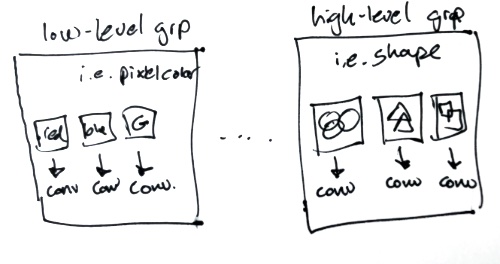 low-level grp
i.e. pixelcolor
red blue G
conv conv conv.
. . . .
high-level grp
i.e. shape
conv conv conv